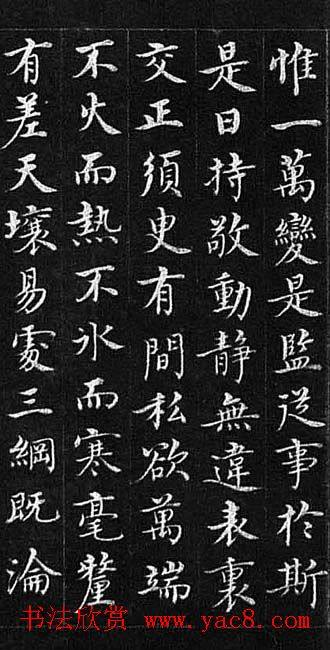 惟一萬變是監從事於斯
是曰持敬動靜無違表裏
交正須臾有間私欲萬端
不火而熱不冰而寒毫釐
有差天壤易處三綱既淪
书法欣赏 www.yac8.com